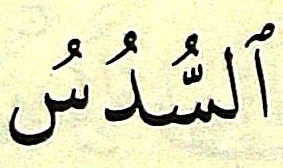 ٱلسُّدُسُ